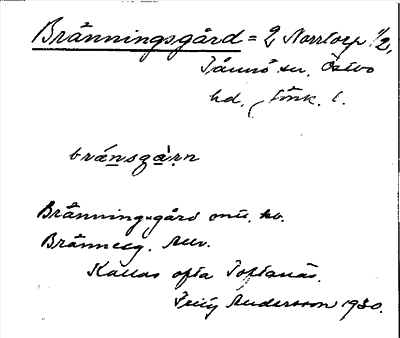 Bränningsgård = 2 Norrtorp 1/2,
Tånnö sn, Östbo
hd, Jönk. l.
bránsgà̱ṛn
Bränningsgård
Brännesg.
Kallas ofta Toftanäs.
Fritz Andersson 1930.